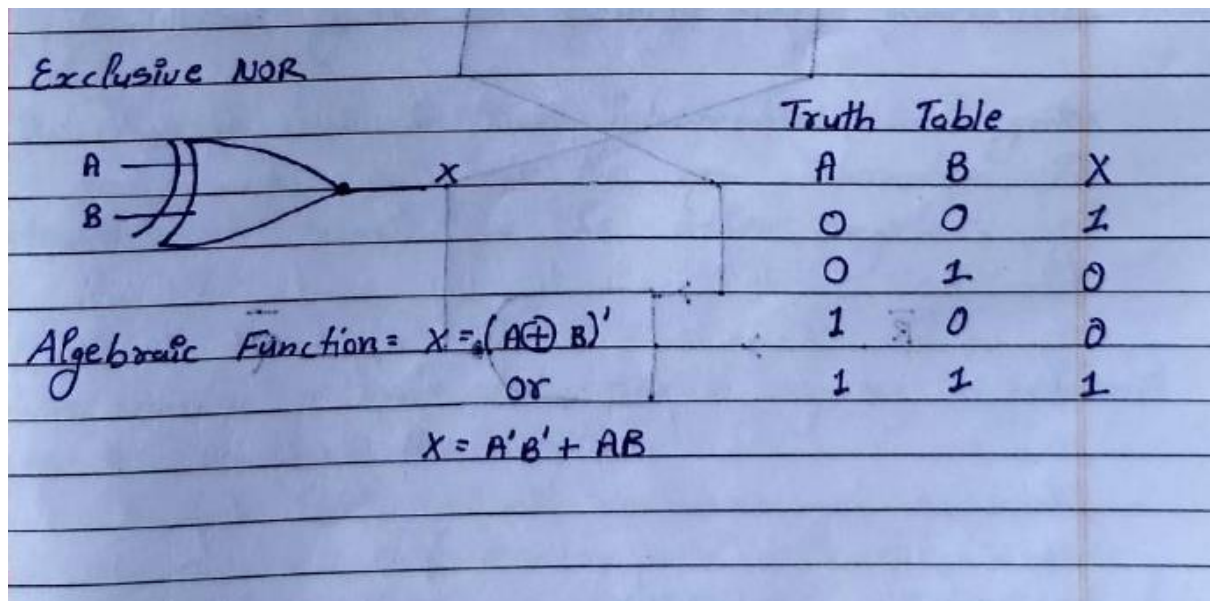 Exclusive NOR
Truth Table
A B X
A X
B
0 0 1
0 1 0
1 0 0
1 1 1
Algebraic Function = X = (A⊕B)'
or
X = A'B' + AB